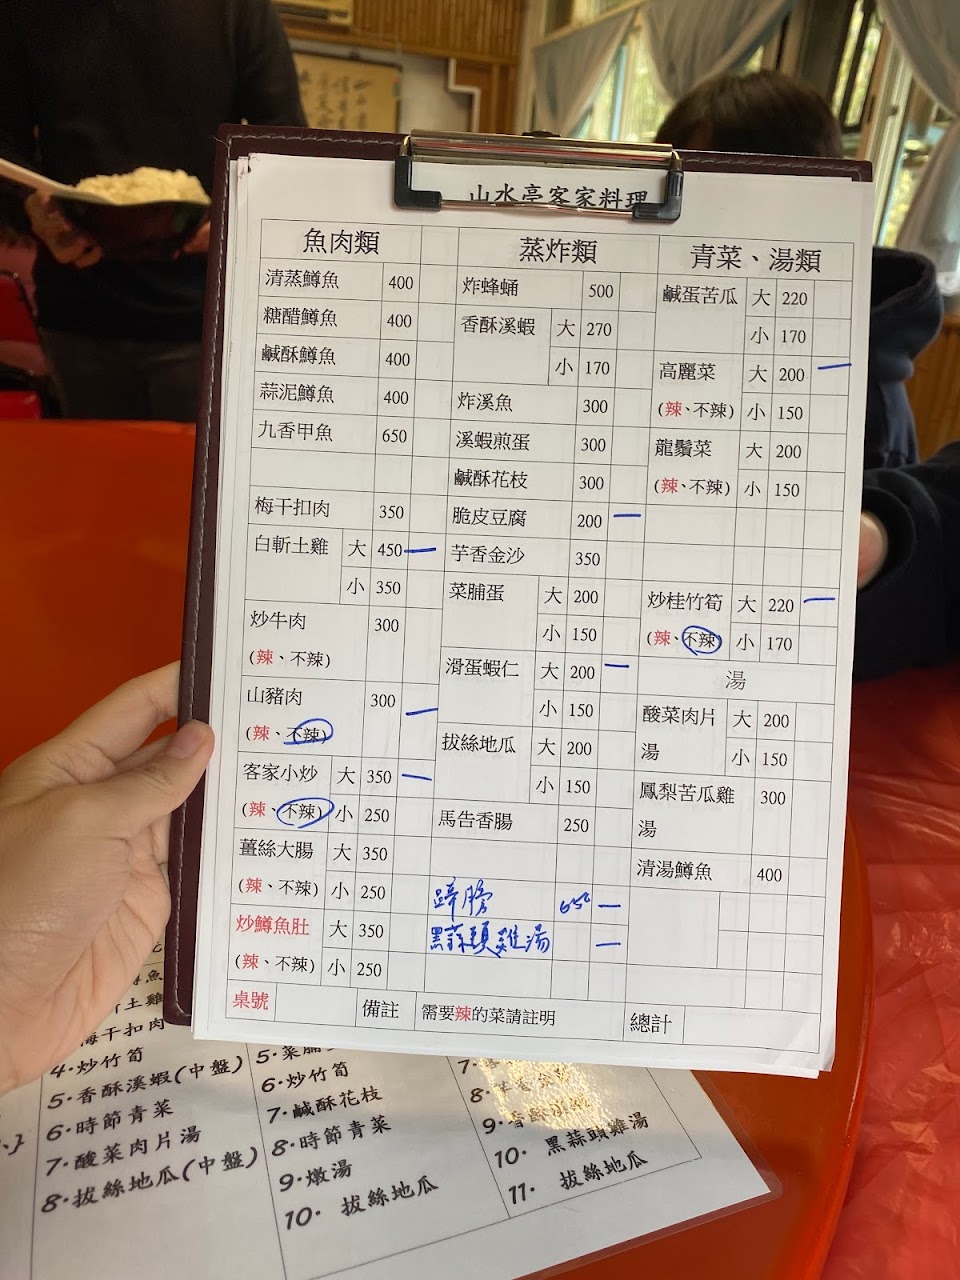 山水亭客家料理
魚肉類
清蒸鱒魚 400
糖醋鱒魚 400
鹹酥鱒魚 400
蒜泥鱒魚 400
九香甲魚 650
梅干扣肉 350
白斬土雞 大 450 —
小 350
炒牛肉 300
(辣、不辣)
山豬肉 300 —
(辣、不辣)
客家小炒 大 350 —
(辣、不辣) 小 250
薑絲大腸 大 350
(辣、不辣) 小 250
炒鱒魚肚 大 350
(辣、不辣) 小 250
蒸炸類
炸蜂蛹 500
香酥溪蝦 大 270
小 170
炸溪魚 300
溪蝦煎蛋 300
鹹酥花枝 300
脆皮豆腐 200 —
芋香金沙 350
菜脯蛋 大 200
小 150
滑蛋蝦仁 大 200 —
小 150
拔絲地瓜 大 200
小 150
馬告香腸 250
蹄膀 650 —
黑蒜頭雞湯 —
青菜、湯類
鹹蛋苦瓜 大 220
小 170
高麗菜 大 200 —
(辣、不辣) 小 150
龍鬚菜 大 200
(辣、不辣) 小 150
炒桂竹筍 大 220 —
(辣、不辣) 小 170
湯
酸菜肉片 大 200
湯 小 150
鳳梨苦瓜雞 300
湯
清湯鱒魚 400
桌號 備註 需要辣的菜請註明 總計
土雞
梅干扣肉
4·炒竹筍
5·香酥溪蝦(中盤)
6·時節青菜
7·酸菜肉片湯
8·拔絲地瓜(中盤)
5·菜脯
6·炒竹筍
7·鹹酥花枝
8·時節青菜
9·燉湯
10· 拔絲地瓜
7·
8·
9·
10· 黑蒜頭雞湯
11· 拔絲地瓜